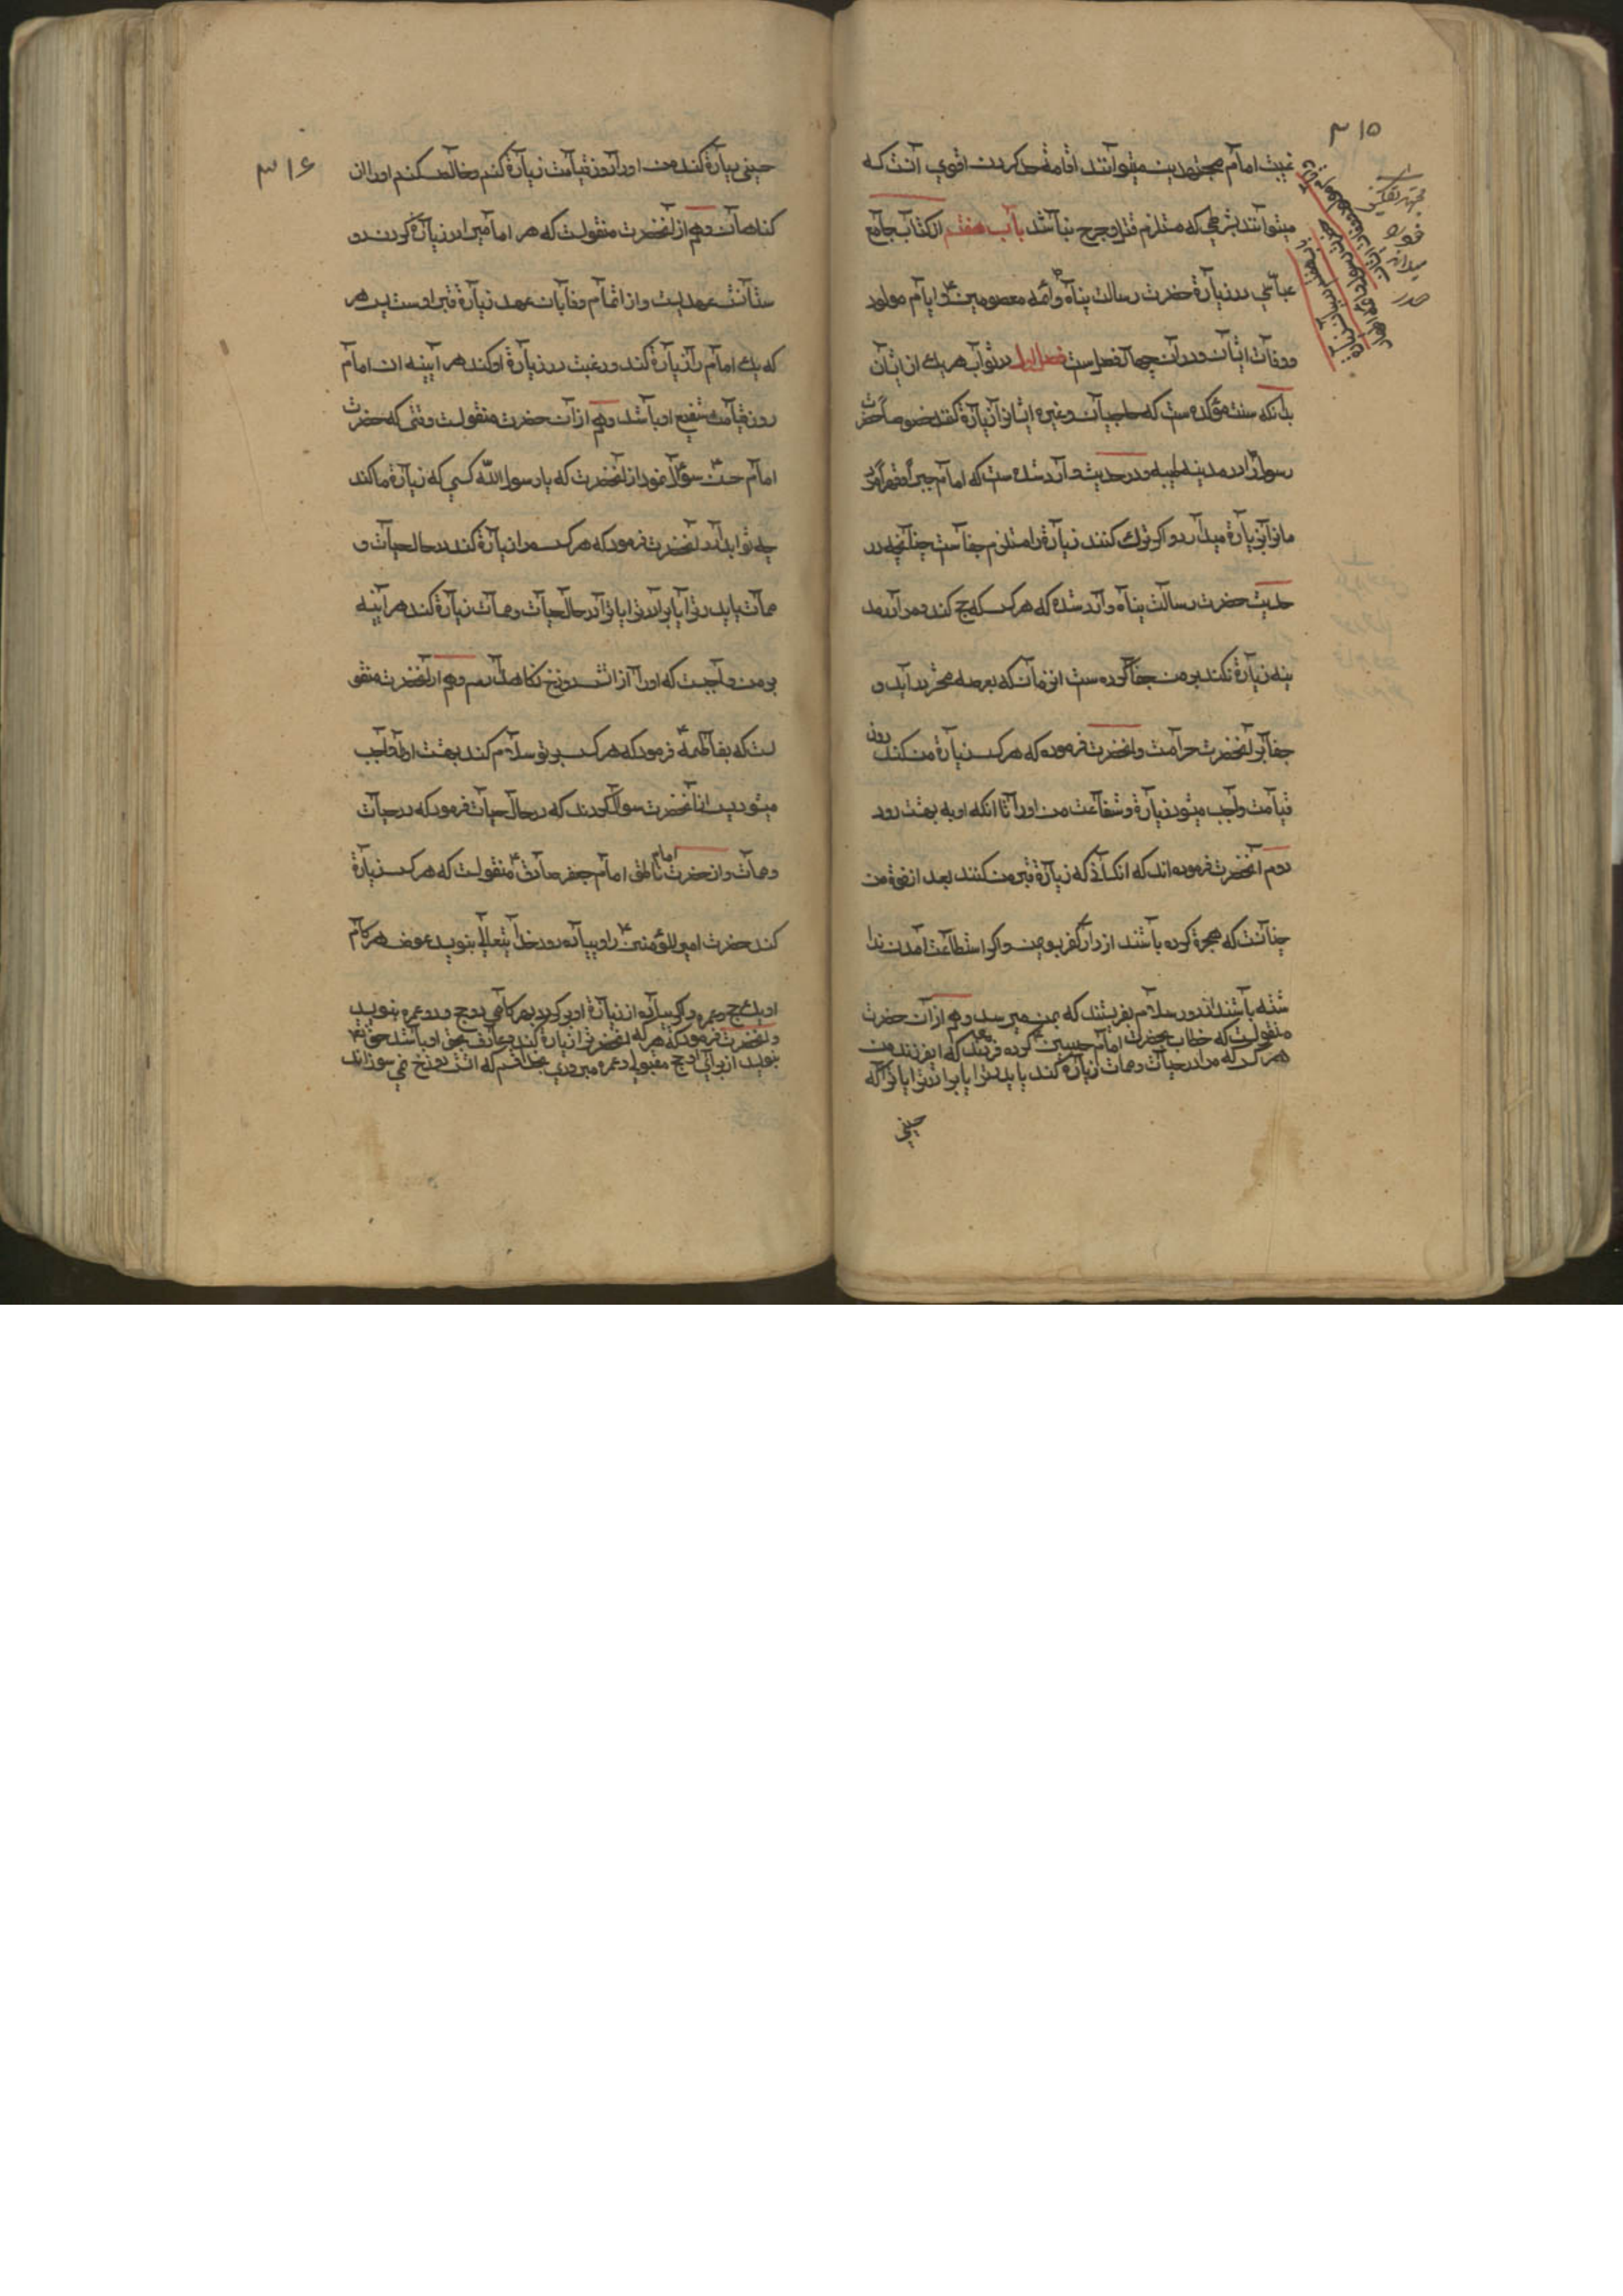 ۳۱۵
غیبت امام مجتهدین میتوانند اقامة حد کردن اقوی آنست که
میتوانند بشرطی که مستلزم قتل و جرح نباشد باب هفتم از کتاب جامع
عباسی در زیارة حضرت رسالت پناه ص و ائمه معصومین ع و ایام مولود
و وفات ایشان و در آن چهار فصل ست فصل اول در ثواب هر یک از ایشان
بدانکه سنت مؤکده ست که حاجیان و غیره ایشانرا زیارة کنند خصوصاً حضرت
رسول را در مدینه طیبه و در حدیث وارد شده ست که امام جبراً و قهراً مرد
مانرا بزیارة میدارد و اگر ترک کنند زیارة را مستلزم جفاست چنانچه در
حدیث حضرت رسالت پناه وارد شده که هر کس که حج کند و مرا در مد
ینه زیارة نکند بر من جفا کرده ست انزمان که بعرصه محشر در آید و
جفا بر آنحضرت حرامست و آنحضرت فرموده که هر کس زیارة من کند روز
قیامت واجب میشود زیارة و شفاعت من اورا تا انکه او به بهشت رود
دوم آنحضرت فرموده اند که انکسانی که زیارة قبر من کنند بعد از فوة من
چنانست که هجرة کرده باشند از دار کفر بسوی من و اگر استطاعت آمدن ندا
شته باشند از دور سلام بفرستند که بمن میرسد و هم از آن حضرت
منقولست که خطاب بحضرت امام حسین ع کرده فرمودند که ای فرزند من
هر کس که مرا در حیات و ممات زیارة کند یا پدر ترا یا برادر ترا یا ترا که
حسینی
باب هفتم در بیان زیارة
حضرت رسول و ائمه اطهار
مجتهد
خود
میداند
صدر
۳۱۶
حسینی زیارة کند من اورا روز قیامت زیارة کنم و خالص کنم اورا از ان
کناهان و هم از آنحضرت منقولست که هر امامی را در زیارة کردن دو
ستانش عهدیست و از اتمام وفا بان عهد زیارة قبر اوست پس هر
که یک امام را زیارة کند و رغبت در زیارة او کند هر آینه ان امام
روز قیامت شفیع او باشد و هم از آن حضرت منقولست وقتی که حضرت
امام حسن سؤال نمود از آنحضرت که یا رسول الله کسی که زیارة ما کند
چه ثواب دارد آنحضرت فرمود که هر کس مرا زیارة کند در حال حیات و
ممات یا پدر ترا یا برادر ترا یا ترا در حال حیات و ممات زیارة کند هر آینه
بر من واجبست که اورا از اتش دوزخ نکاه دارم و هم از آنحضرت منقو
لست که بفاطمه ع فرمود که هر کس بر تو سلام کند بهشت اورا واجب
میشود پس از آنحضرت سوال کردند که در حال حیات فرمود که در حیات
و ممات و از حضرت امام ناطق امام جعفر صادق ع منقولست که هر کس زیارة
کند حضرت امیر المؤمنین ع را و پیاده رود خدایتعالی بنویسد عوض هر کام
او یک حج و عمره و اگر پیاده از زیارة او بر گردد بهر کامی دو حج و دو عمره بنویسد
و آنحضرت فرمود که هر که آنحضرت را زیارة کند و عارف بحق او باشد حق تع
بنویسد از برای او حج مقبول و عمره مبروری بخدا قسم که اتش دوزخ نمی سوزاند